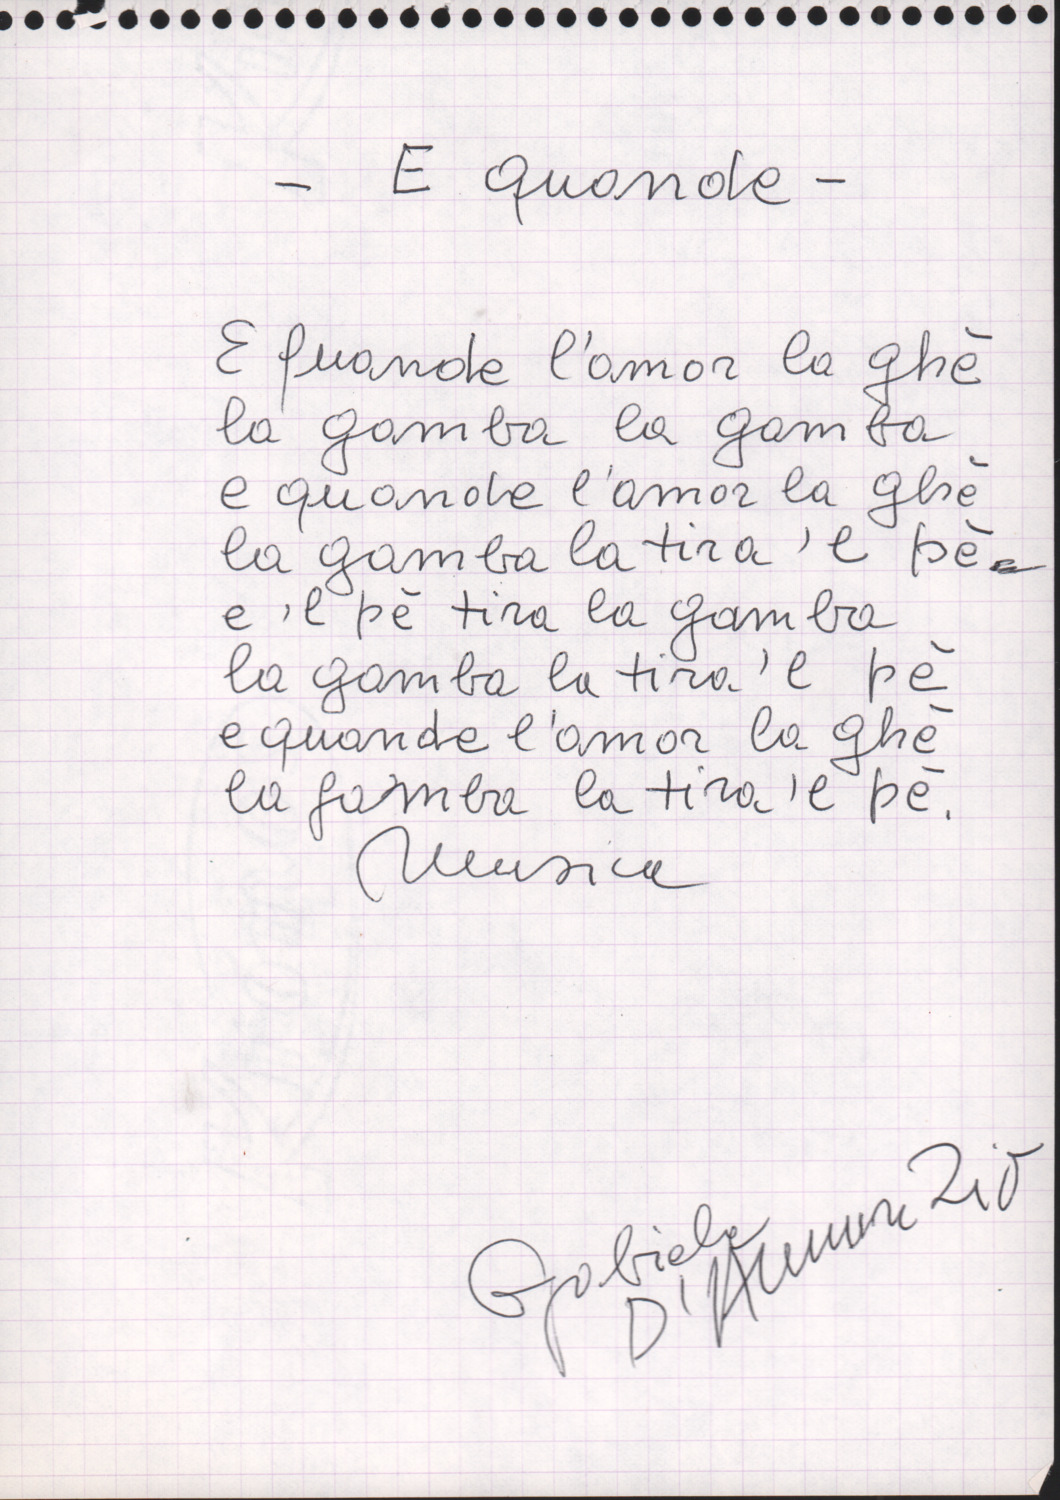 - E quande -
E quande l'amor la ghè
la gamba la gamba
e quande l'amor la ghè
la gamba la tira 'l pè
e 'l pè tira la gamba
la gamba la tira 'l pè
e quande l'amor la ghè
la gamba la tira 'l pè.
Musica
Gabiela
D'Annunzio